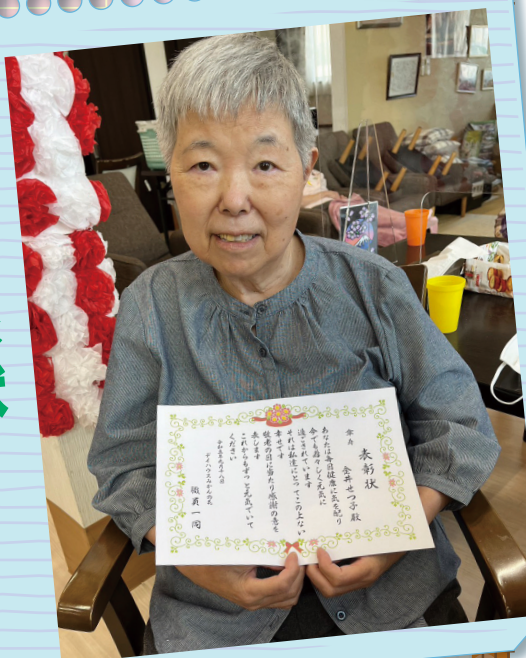 表彰状
傘寿
金井せつ子殿
あなたは毎日健康に気を配り
今でも若々しく元気に
過ごされています
それは私達にとってこの上ない
幸せです
敬老の日に当たり感謝の意を
表します
これからもずっと元気でいて
ください
職員一同